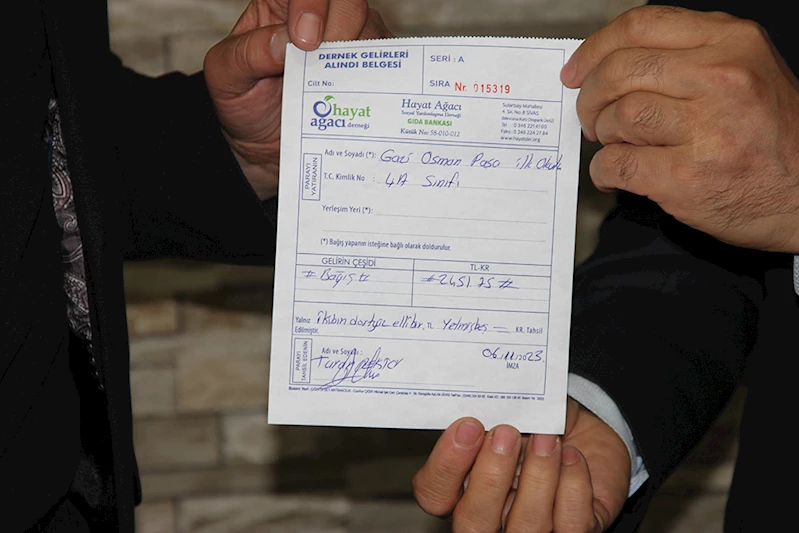 DERNEK GELİRLERİ
ALINDI BELGESİ
SERİ : A
Cilt No:
SIRA Nr. 015319
hayat
ağacı derneği
Hayat Ağacı
Sosyal Yardımlaşma Derneği
GIDA BANKASI
Kütük No: 58-010-012
Sularbaşı Mahallesi
4. Sk. No.8 SİVAS
Tel.: 0 346 221 41 03
Faks.: 0 346 224 27 84
www.hayatder.org
PARAYI YATIRANIN
Adı ve Soyadı (*): Gazi Osman Paşa ilk Okulu
T.C. Kimlik No : 4A Sınıfı
Yerleşim Yeri (*):
(*) Bağış yapanın isteğine bağlı olarak doldurulur.
GELİRİN ÇEŞİDİ
TL-KR
# Bağış #
# 2451.75 #
Yalnız ikibin dörtyüz ellibir TL Yetmişbeş KR. Tahsil
Edilmiştir.
PARAYI TAHSİL EDENİN
Adı ve Soyadı :
İMZA